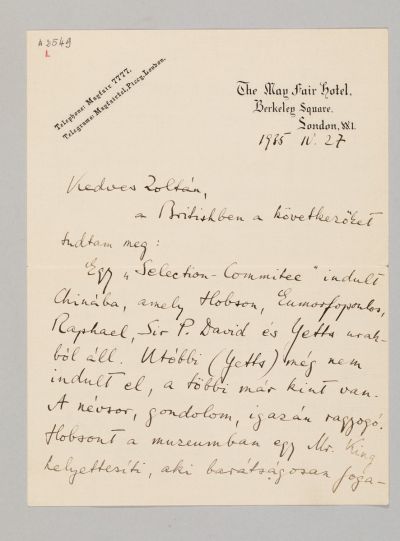 A 3549
1
Telephone: Mayfair 7777.
Telegrams: Mayfairtel, Piccy, London.
The May Fair Hotel,
Berkeley Square,
London, W.1.
1935 IV. 27
Kedves Zoltán,
a Britishben a következőket
tudtam meg:
Egy „Selection-Commitee" indult
Chinába, amely Hobson, Eumorfopoulos,
Raphael, Sir P. David és Yetts urak-
ból áll. Utóbbi (Yetts) még nem
indult el, a többi már kint van.
A névsor, gondolom, igazán ragyogó.
Hobsont a muzeumban egy Mr. King
helyettesíti, aki barátságosan foga-